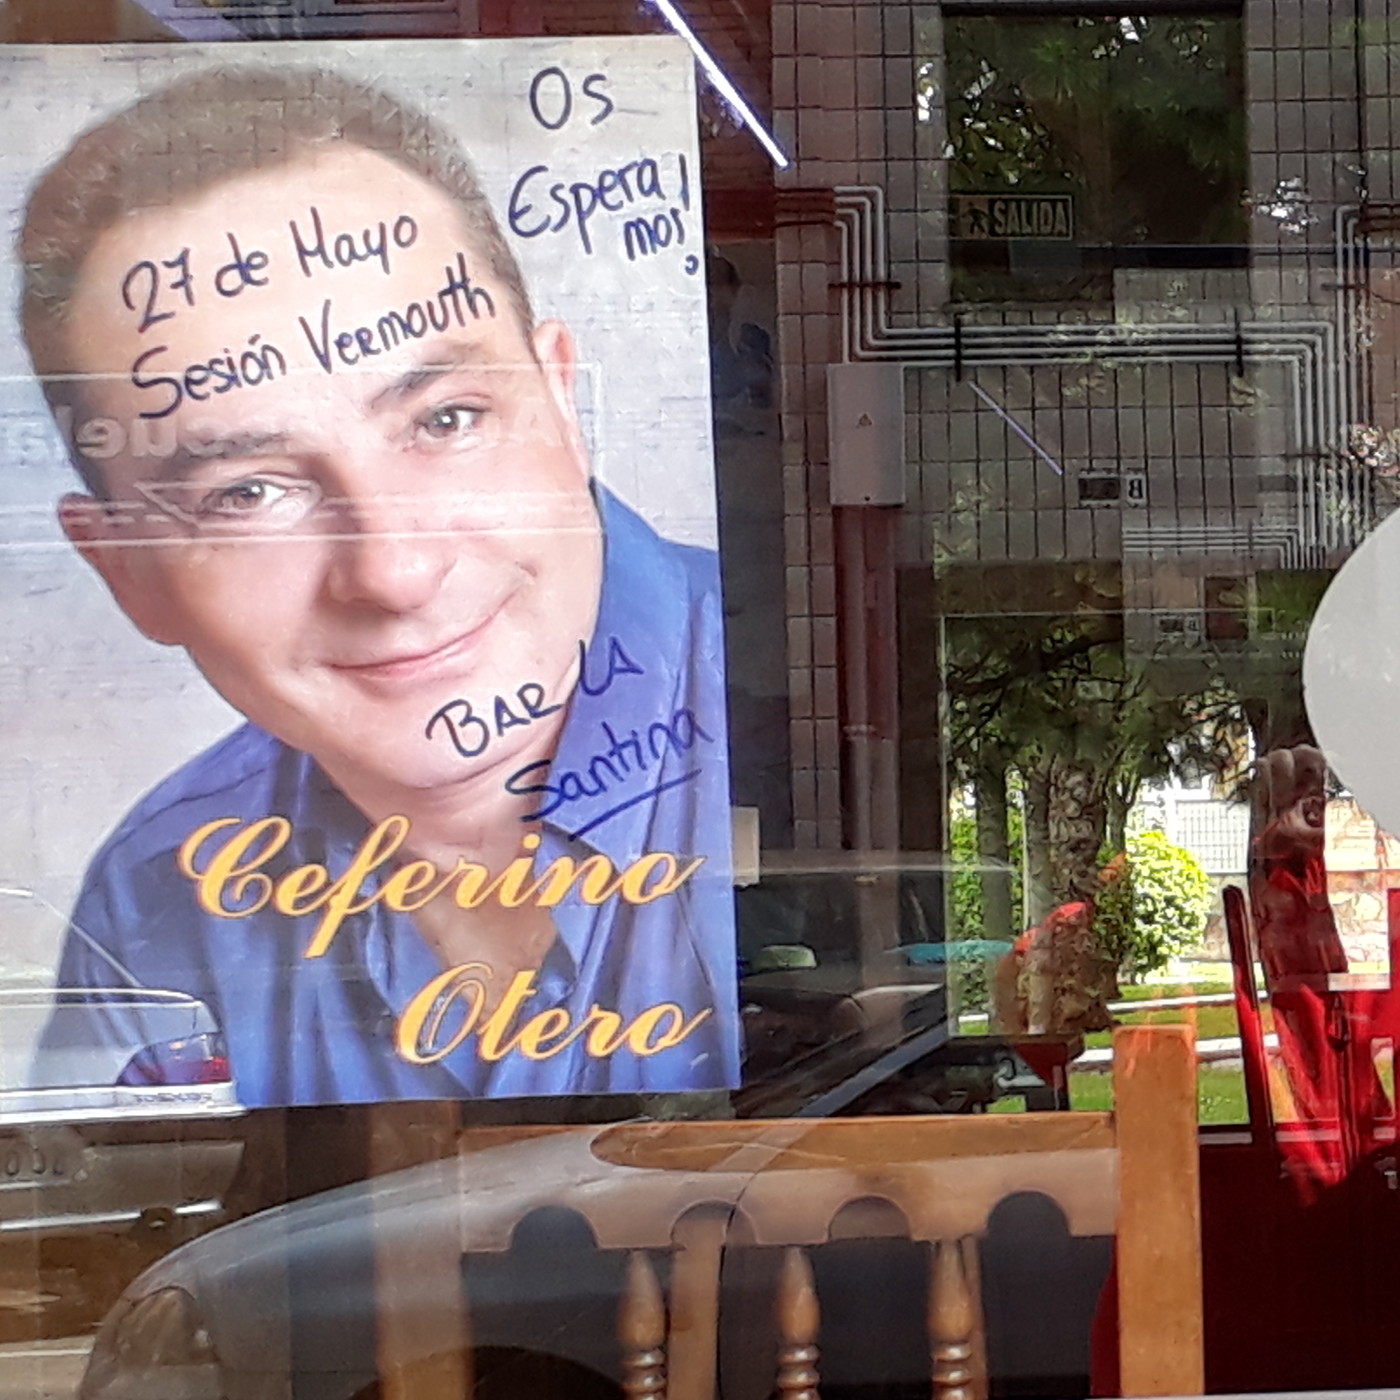 Os
Espera
mos!
27 de Mayo
Sesión Vermouth
BAR LA
Santina
Ceferino
Otero
SALIDA